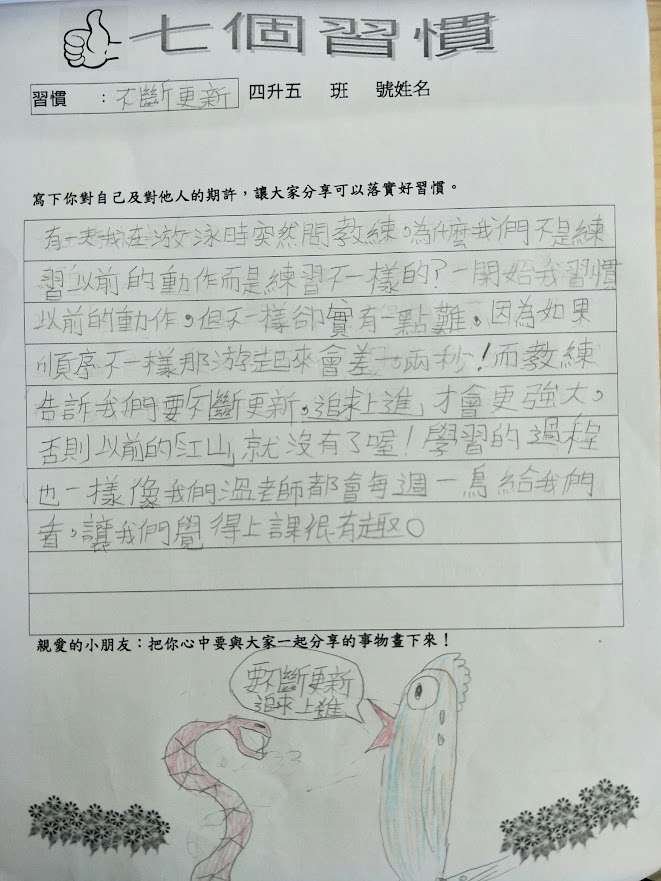 七個習慣
習慣 :不斷更新 四升五 班 號姓名
寫下你對自己及對他人的期許,讓大家分享可以落實好習慣。
有一天我在游泳時突然問教練,為什麼我們不是練
習以前的動作而是練習不一樣的?一開始我習慣
以前的動作,但不一樣卻實有一點難,因為如果
順序不一樣那游起來會差一、兩秒!而教練
告訴我們要不斷更新,追求上進,才會更強大,
否則以前的「江山」就沒有了喔!學習的過程
也一樣像我們溫老師都會每週一鳥給我們
看,讓我們覺得上課很有趣。
親愛的小朋友:把你心中要與大家一起分享的事物畫下來!
要不斷更新
追求上進